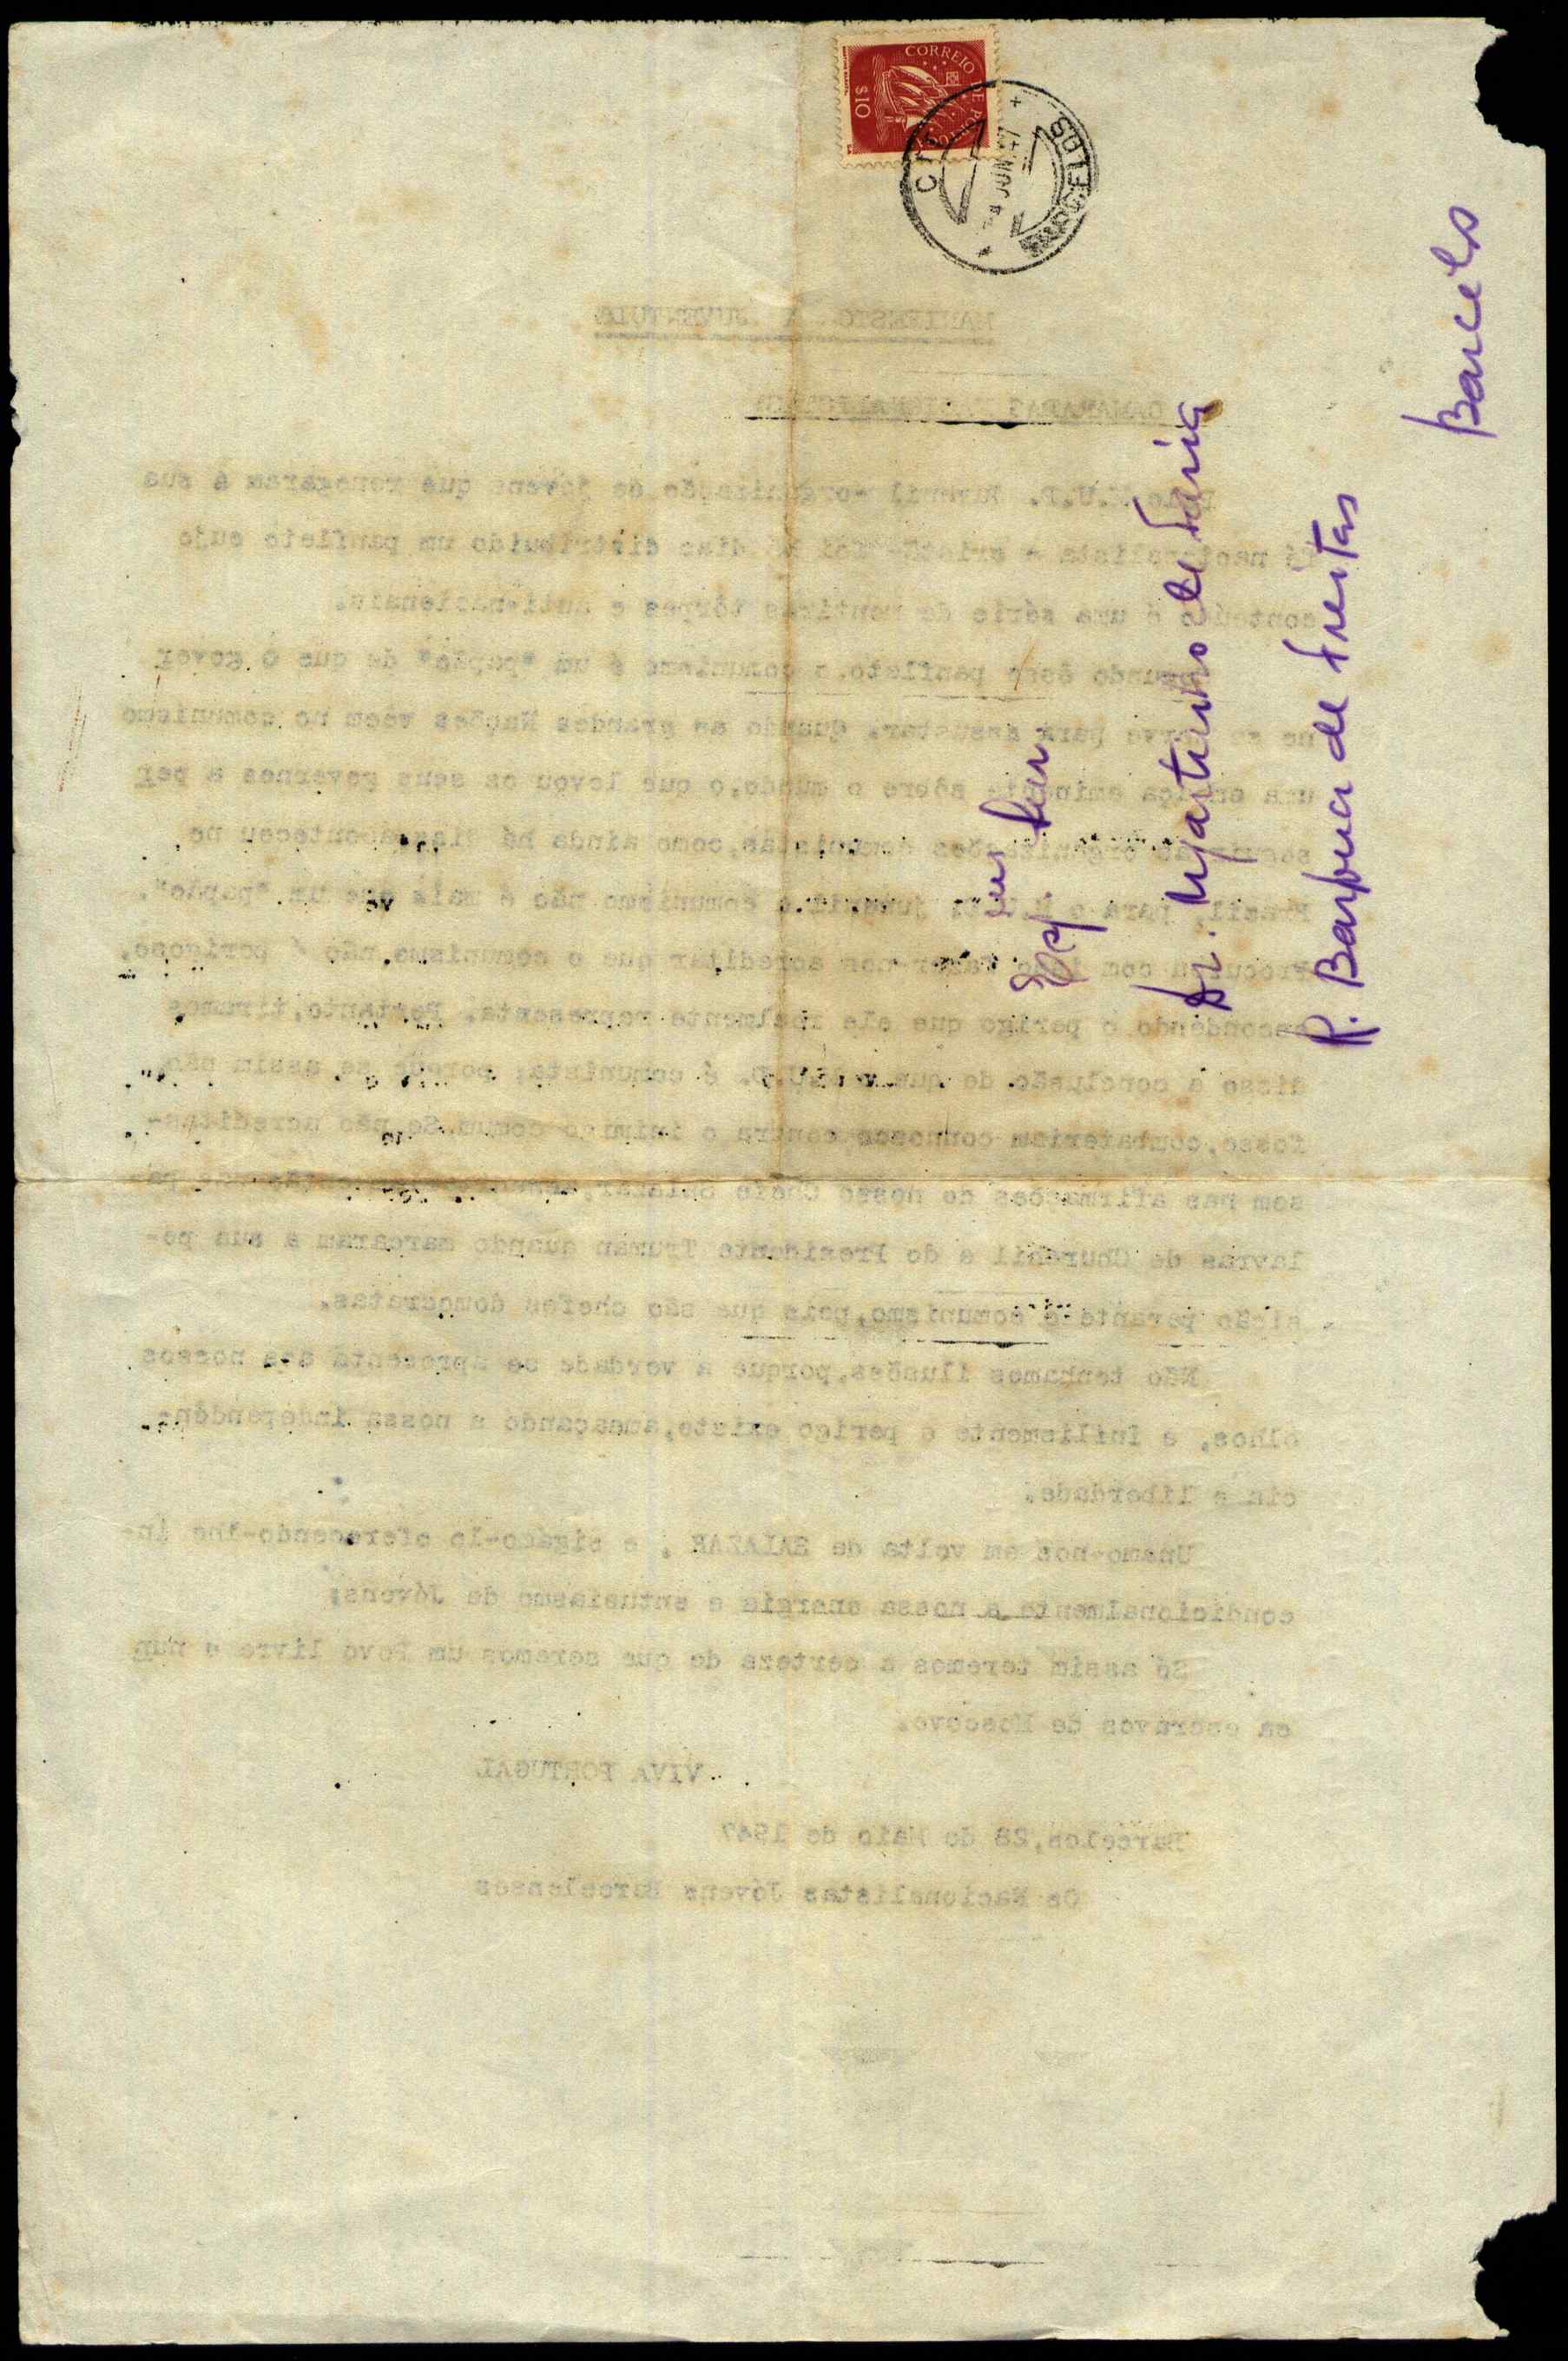 CORREIO DE PORTUGAL
$10
CTT
4 JUN 47
BARCELOS
Exmº Snr.
Dr. Martinho de Faria
R. Barjona de Freitas
Barcelos
MANIFESTO À JUVENTUDE
CAMARADAS NACIONALISTAS
Pelo M.U.D. Juvenil -organização de jovens que renegaram a sua
fé nacionalista e cristã- foi há dias distribuido um panfleto cujo
conteúdo é uma série de mentiras tôrpes e anti-nacionais.
Segundo êsse panfleto,o comunismo é um "papão" de que o gover
no se serve para assustar. Quando as grandes Nações vêem no comunismo
uma ameaça eminente sôbre o mundo,o que levou os seus governos a per
seguir as organizações comunistas,como ainda há dias aconteceu no
Brasil, para o M.U.D. juvenil o comunismo não é mais que um "papão".
Procuram com isso fazer-nos acreditar que o comunismo não é perigoso,
escondendo o perigo que ele realmente representa. Portanto,tiramos
disso a conclusão de que o M.U.D. é comunista; porque se assim não
fosse,combateriam connosco contra o inimigo comum.Se não acreditas-
sem nas afirmações do nosso Chefe Salazar, pa-
lavras de Churchil e do Presidente Truman quando marcaram a sua po-
sição perante o comunismo,pois que são chefes democratas.
Não tenhamos ilusões,porque a verdade se apresenta aos nossos
olhos, e infilismente o perigo existe,ameaçando a nossa independên-
cia e liberdade.
Unamo-nos em volta de SALAZAR , e sigâmo-lo oferecendo-lhe in-
condicionalmente a nossa energia e entusiasmo de Jóvens;
Só assim teremos a certeza de que seremos um Povo livre e nun
ca escravos de Moscovo.
VIVA PORTUGAL
Barcelos,28 de Maio de 1947
Os Nacionalistas Jóvens Barcelenses